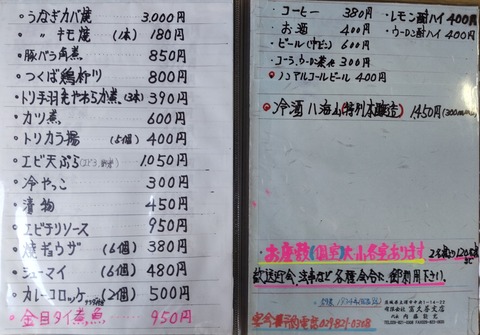 うなぎカバ焼 3,000円
〃 キモ焼 (1本) 180円
豚バラ角煮 850円
つくば鶏柳川 800円
トリ手羽先やわらか煮(3本) 390円
カツ煮 600円
トリカラ揚 (5個) 400円
エビ天ぷら 1,050円
冷やっこ 300円
漬物 450円
エビチリソース 950円
焼ギョウザ (6個) 380円
シューマイ (6個) 480円
カレーコロッケ (2個) 500円
金目タイ煮魚 950円
コーヒー 380円
お酒 400円
ビール(中ビン) 600円
コーラ、ウーロン茶 300円
ノンアルコールビール 400円
レモン酎ハイ 400円
ウーロン酎ハイ 400円
冷酒 八海山(特別本醸造) 1,450円(300ml)
お座敷(個室)大小各室あります
歓送迎会、法事など各種会合に御利用下さい。
茨城県土浦市中央1-14-22
有限会社 富久善支店
宴会予約電話 029-821-0308